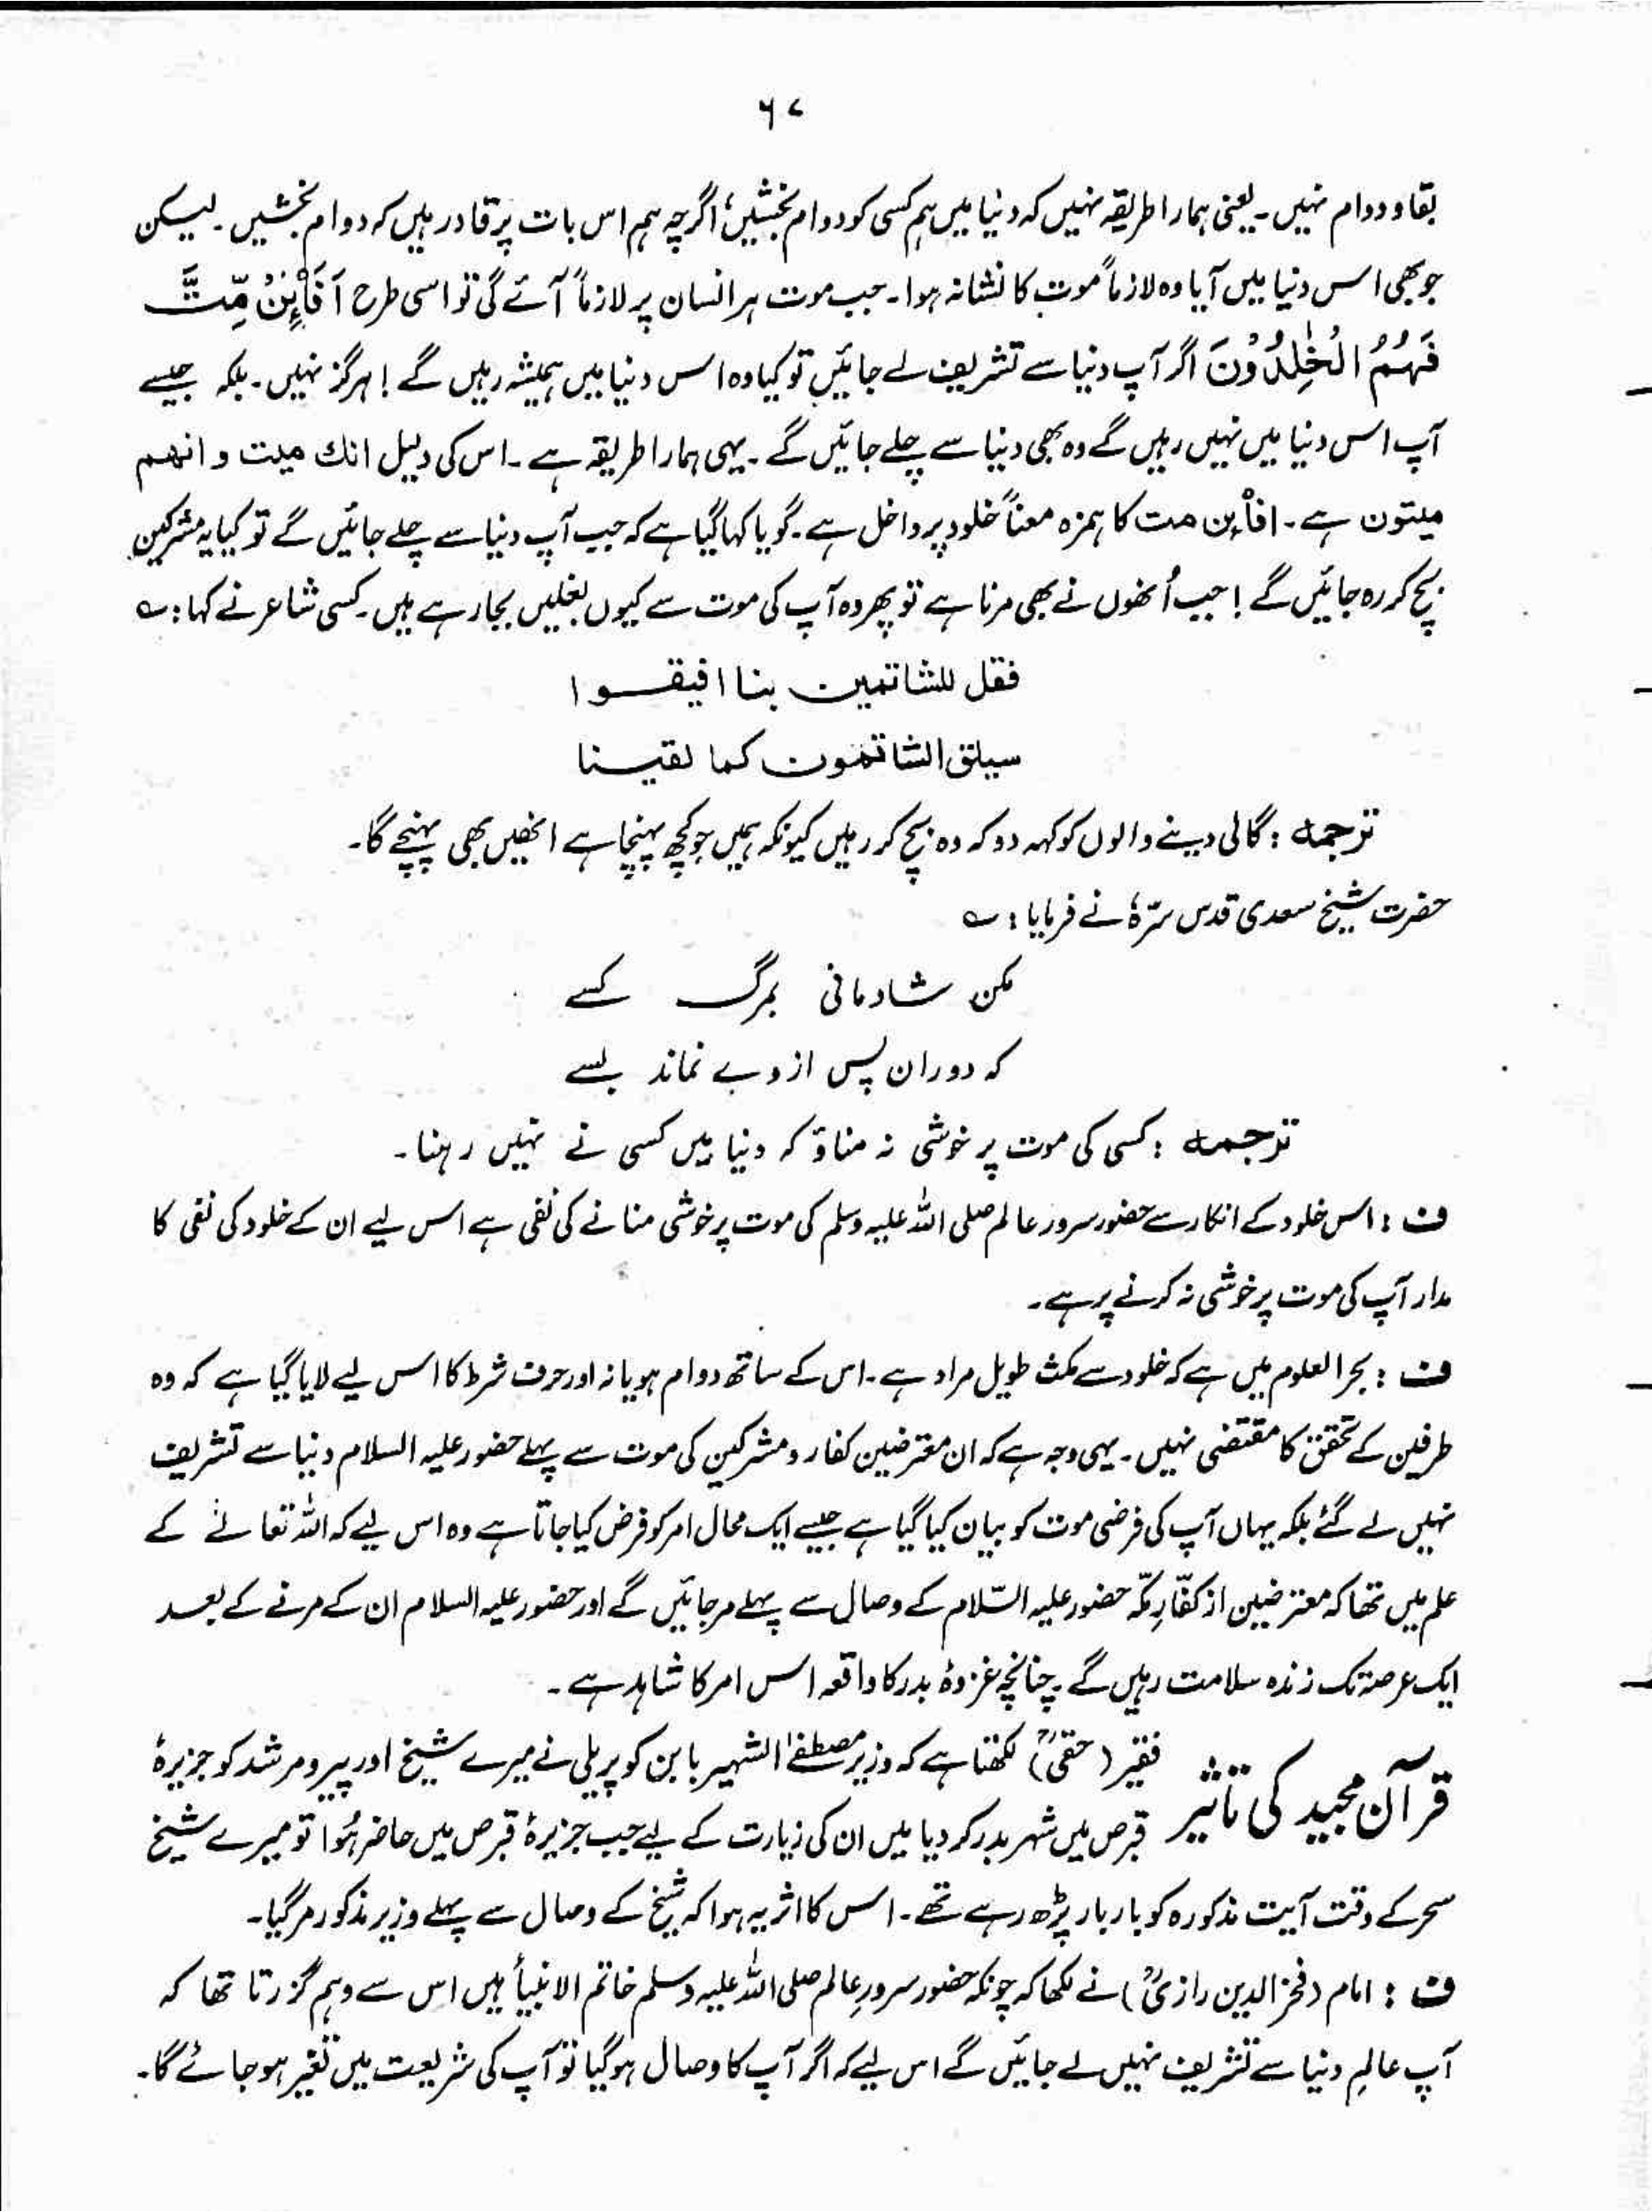 ۶۷
بقاو دوام نہیں۔ یعنی ہمارا طریقہ نہیں کہ دنیا میں ہم کسی کو دوام بخشیں، اگرچہ ہم اس بات پر قادر ہیں کہ دوام بخشیں۔ لیکن
جو بھی اس دنیا میں آیا وہ لازماً موت کا نشانہ ہوا۔ جب موت ہر انسان پر لازماً آئے گی تو اسی طرح اَفَاْئِنْ مِّتَّ
فَھُمُ الْخٰلِدُوْنَ اگر آپ دنیا سے تشریف لے جائیں تو کیا وہ اس دنیا میں ہمیشہ رہیں گے! ہرگز نہیں۔ بلکہ جیسے
آپ اس دنیا میں نہیں رہیں گے وہ بھی دنیا سے چلے جائیں گے۔ یہی ہمارا طریقہ ہے۔ اس کی دلیل انك میت و انھم
میتون ہے۔ افأین مت کا ہمزہ معناً خلود پر داخل ہے۔ گویا کہا گیا ہے کہ جب آپ دنیا سے چلے جائیں گے تو کیا یہ مشرکین
بچ کر رہ جائیں گے! جب اُنھوں نے بھی مرنا ہے تو پھر وہ آپ کی موت سے کیوں بغلیں بجا رہے ہیں۔ کسی شاعر نے کہا: ؎
فقل للشاتمین بنا افیقوا
سیلق الشاتمون کما لقینا
ترجمہ: گالی دینے والوں کو کہہ دو کہ وہ بچ کر رہیں کیونکہ ہمیں جو کچھ پہنچا ہے انھیں بھی پہنچے گا۔
حضرت شیخ سعدی قدس سرّہٗ نے فرمایا: ؎
مکن شادمانی بمرگ کسے
کہ دوران پس از وے نماند بسے
ترجمہ: کسی کی موت پر خوشی نہ مناؤ کہ دنیا میں کسی نے نہیں رہنا۔
ف: اس خلود کے انکار سے حضور سرور عالم صلی اللہ علیہ وسلم کی موت پر خوشی منانے کی نفی ہے اس لیے ان کے خلود کی نفی کا
مدار آپ کی موت پر خوشی نہ کرنے پر ہے۔
ف: بحر العلوم میں ہے کہ خلود سے مکث طویل مراد ہے۔ اس کے ساتھ دوام ہو یا نہ اور حرف شرط کا اس لیے لایا گیا ہے کہ وہ
طرفین کے تحقق کا مقتضی نہیں۔ یہی وجہ ہے کہ ان معترضین کفار و مشرکین کی موت سے پہلے حضور علیہ السلام دنیا سے تشریف
نہیں لے گئے بلکہ یہاں آپ کی فرضی موت کو بیان کیا گیا ہے جیسے ایک محال امر کو فرض کیا جاتا ہے وہ اس لیے کہ اللہ تعالےٰ کے
علم میں تھا کہ معترضین از کفّارِ مکّہ حضور علیہ السّلام کے وصال سے پہلے مر جائیں گے اور حضور علیہ السلام ان کے مرنے کے بعد
ایک عرصہ تک زندہ سلامت رہیں گے۔ چنانچہ غزوۂ بدر کا واقعہ اس امر کا شاہد ہے۔
قرآن مجید کی تاثیر فقیر (حقیؒ) لکھتا ہے کہ وزیر مصطفےٰ الشہیر بابن کوپریلی نے میرے شیخ اور پیر و مرشد کو جزیرۂ
قبرص میں شہر بدر کر دیا میں ان کی زیارت کے لیے جب جزیرۂ قبرص میں حاضر ہُوا تو میرے شیخ
سحر کے وقت آیت مذکورہ کو بار بار پڑھ رہے تھے۔ اس کا اثر یہ ہوا کہ شیخ کے وصال سے پہلے وزیر مذکور مر گیا۔
ف: امام (فخر الدین رازیؒ) نے لکھا کہ چونکہ حضور سرورِ عالم صلی اللہ علیہ وسلم خاتم الانبیأ ہیں اس سے وہم گزرتا تھا کہ
آپ عالمِ دنیا سے تشریف نہیں لے جائیں گے اس لیے کہ اگر آپ کا وصال ہو گیا تو آپ کی شریعت میں تغیر ہو جائے گا۔